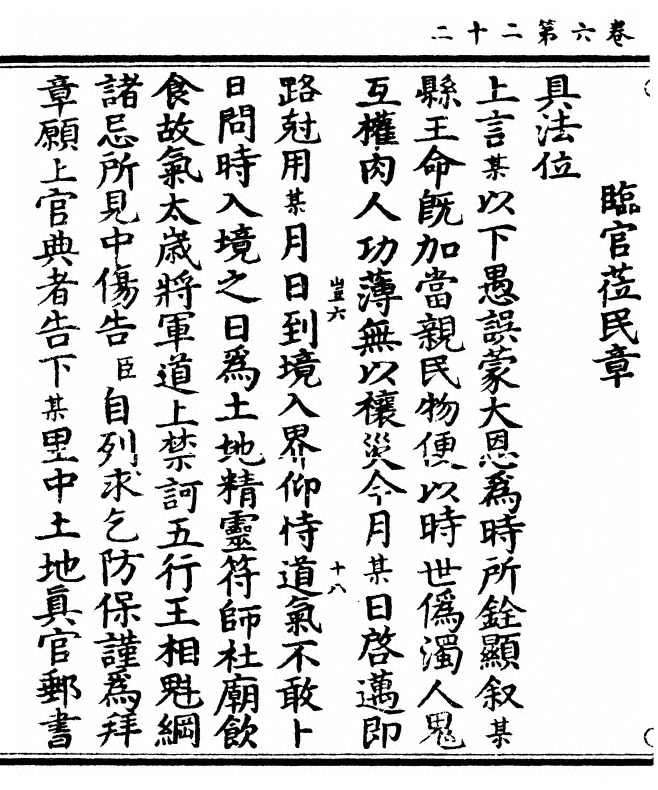 卷六第二十二
臨官莅民章
具法位
上言某以下愚誤蒙大恩爲時所銓顯叙某
縣王命旣加當親民物便以時世僞濁人鬼
互權肉人功薄無以禳災今月某日啓邁即
路尅用某月日到境入界仰恃道氣不敢卜
豈六
十八
日問時入境之日爲土地精靈符師社廟飮
食故氣太歲將軍道上禁訶五行王相魁綱
諸忌所見中傷告臣自列求乞防保謹爲拜
章願上官典者告下某里中土地眞官郵書